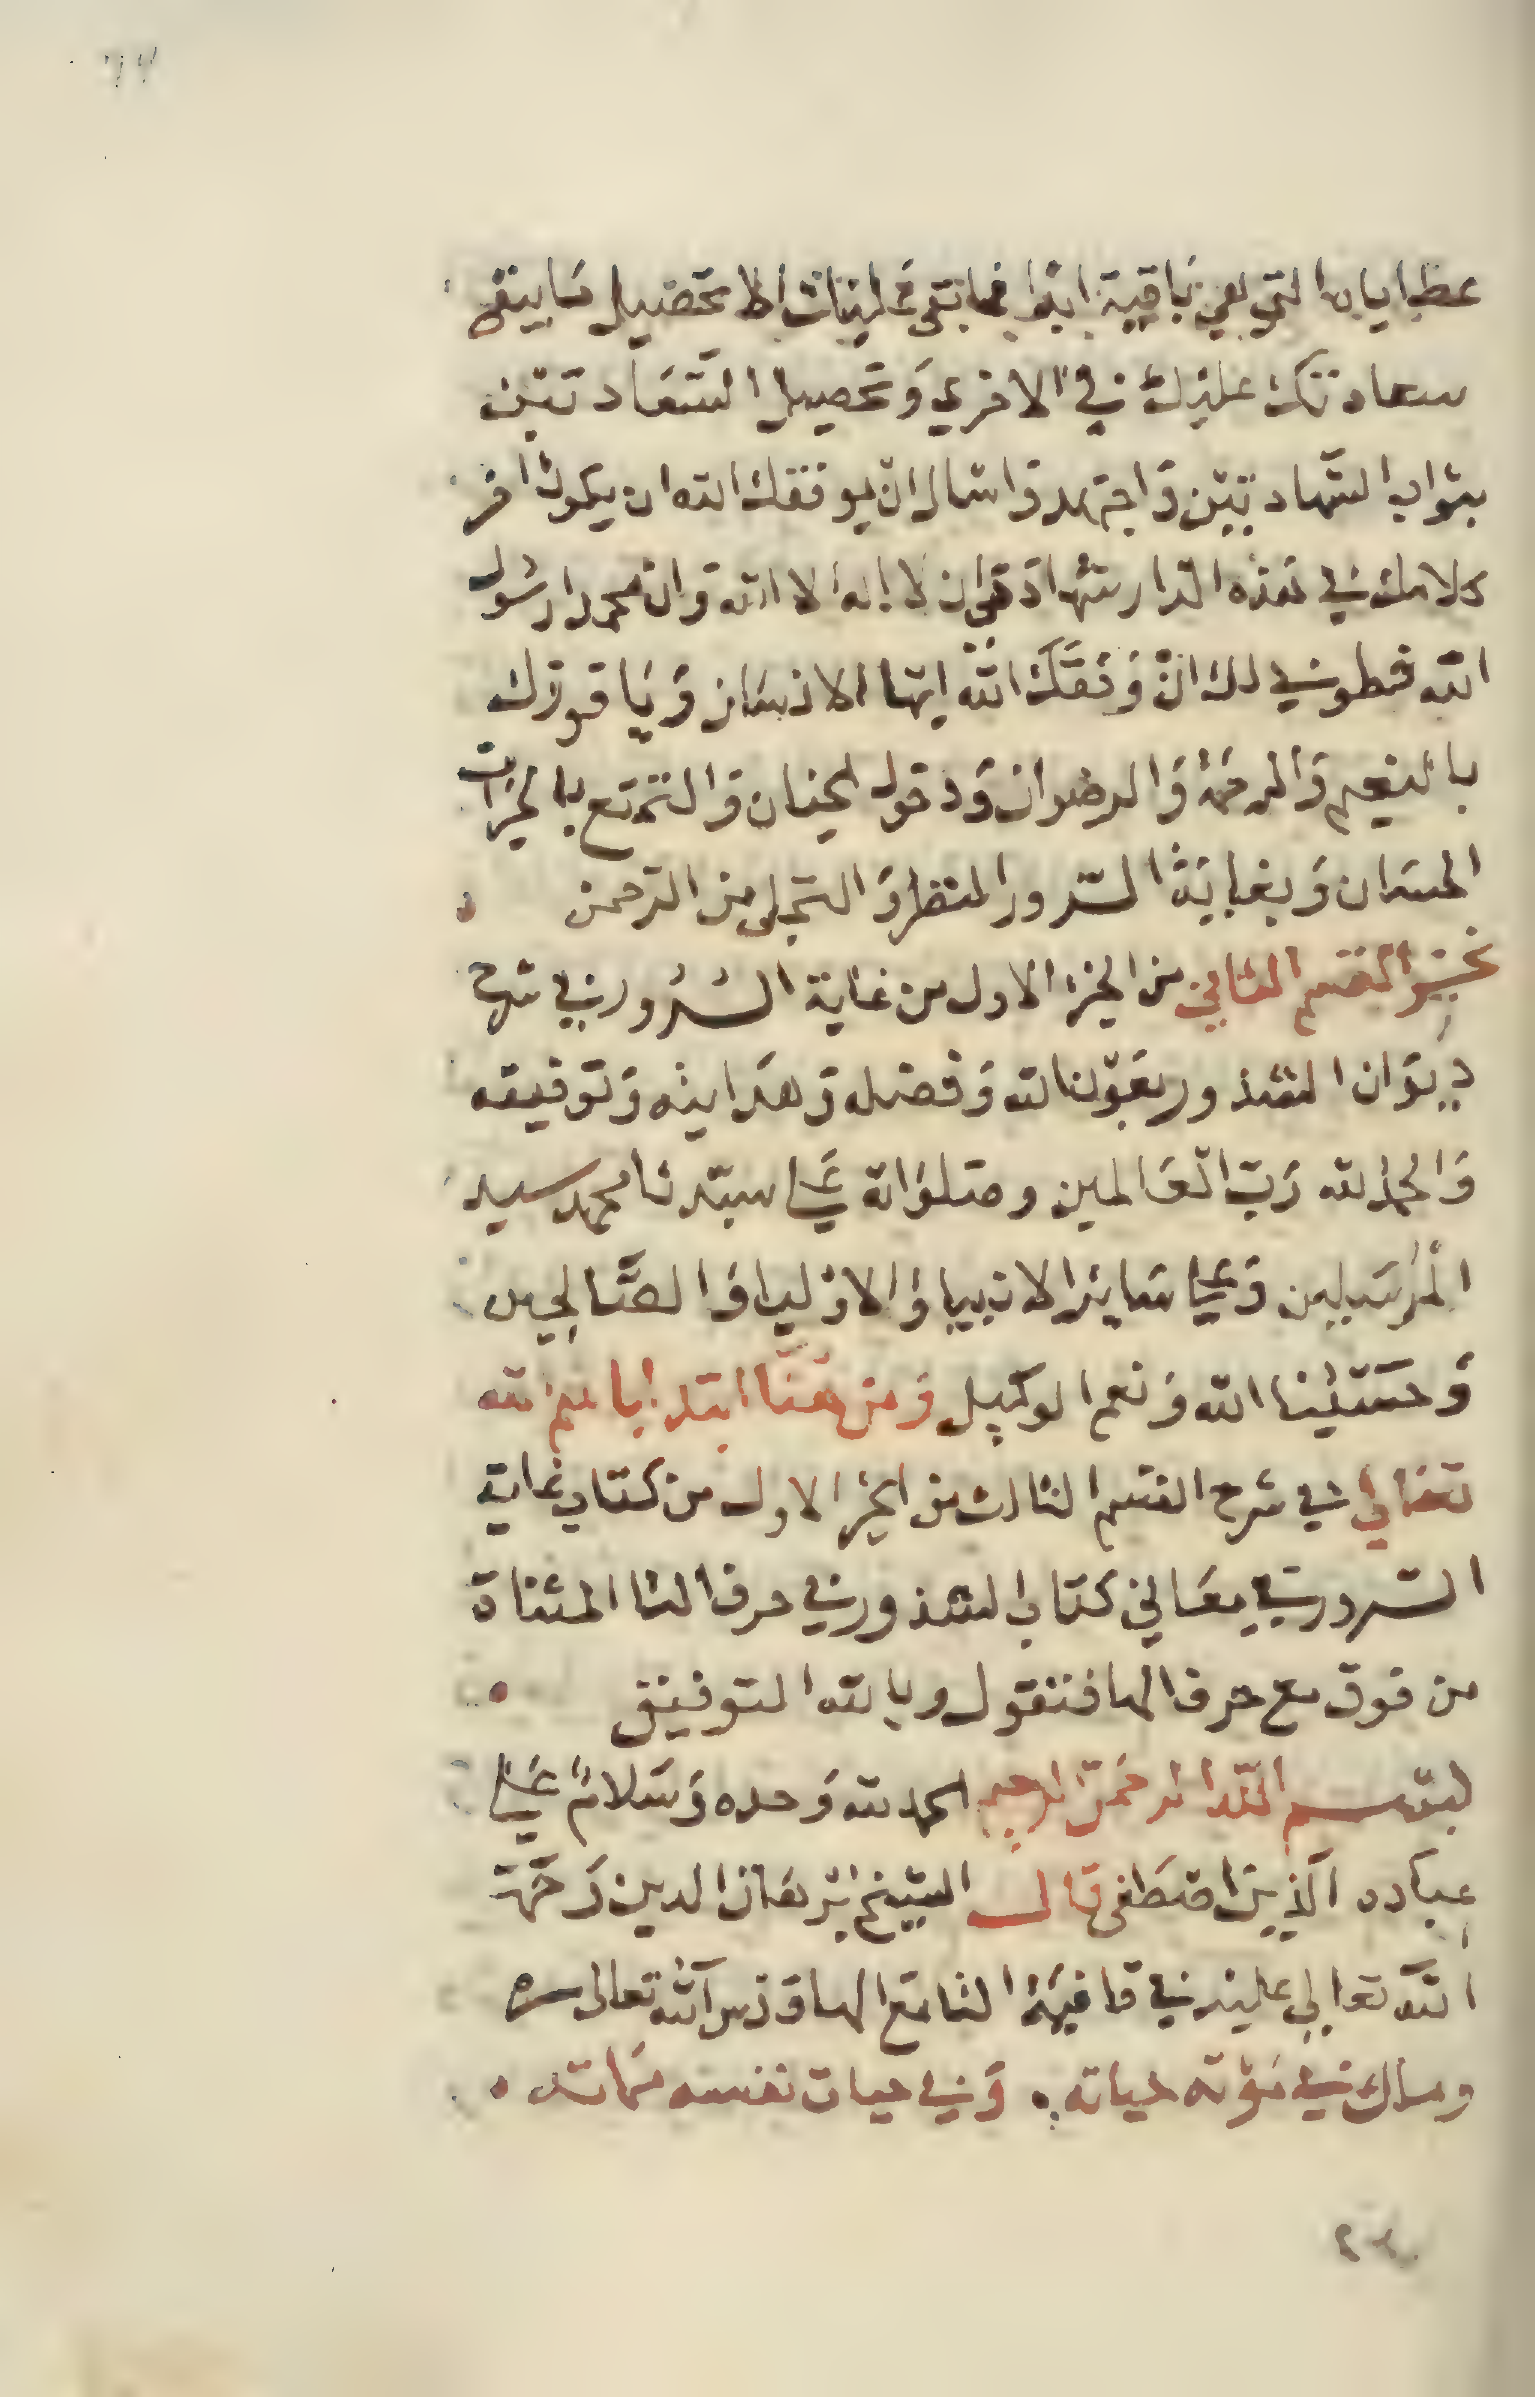 عطاياه التي هي باقية ابدا فما بقي لينات الا تحصيل ما يبقي
سعادتك عليك في الاخري وتحصيل السعادتين
بثواب الشهادتين واجتهد واسال ان يوفقك الله ان يكون اخر
كلامك في هذه الدار شهادة ان لا اله الا الله وان محمدا رسول
الله فطوبي لك ان وفقك الله ايها الانسان ويا فوزك
بالنعيم والرحمة والرضوان ودخول الجنان والتمتع بالخيرات
الحسان وبغاية السرور المنظر والتجلي من الرحمن
نجز القسم الثاني من الجزء الاول من غاية السرور في شرح
ديوان الشذور بعون الله وفضله وهدايته وتوفيقه
والحمد لله رب العالمين وصلواته علي سيدنا محمد سيد
المرسلين وعلي ساير الانبيا والاوليا والصالحين
وحسبنا الله ونعم الوكيل ومن هنا ابتدا باسم الله
تعالي في شرح القسم الثالث من الجزء الاول من كتاب غاية
السرور في معاني كتاب الشذور في حرف التا المثناة
من فوق مع حرف الها فنقول وبالله التوفيق
بسم الله الرحمن الرحيم الحمد لله وحده وسلام علي
عباده الذين اصطفي قال الشيخ برهان الدين رحمة
الله تعالي عليه في قافية التا مع الها قدس الله تعالى سره
وسال في موته حياته . وفي حيات نفسه مماته .